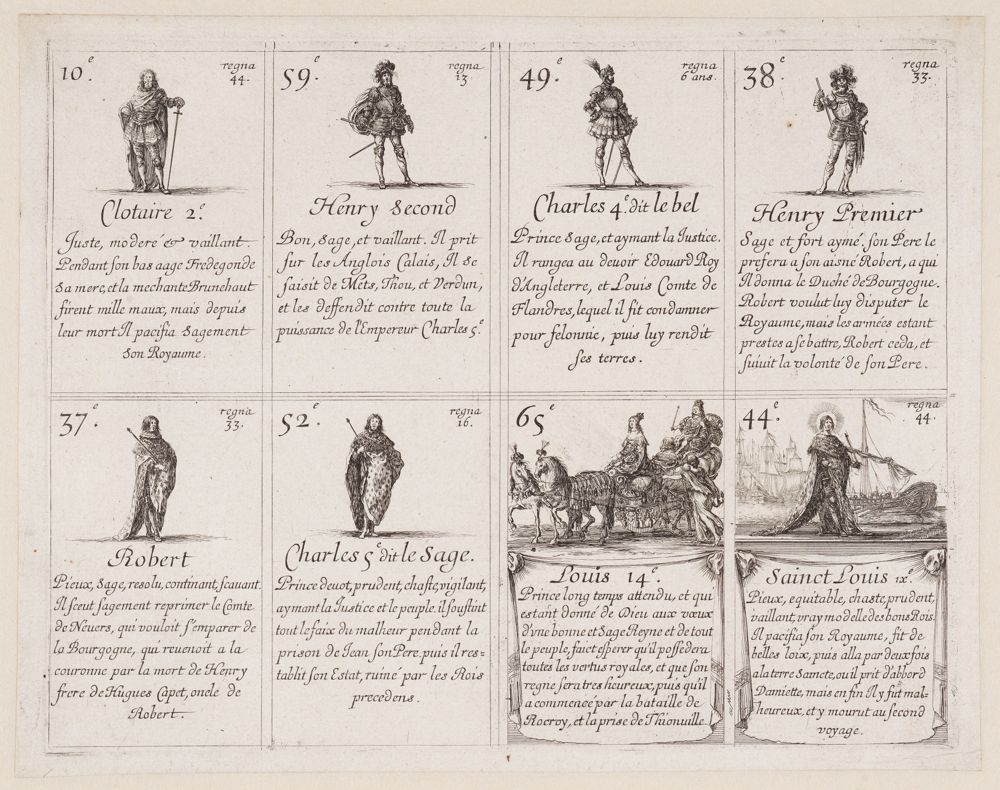 10.e
regna
44.
Clotaire 2.e
Juste, moderé & vaillant.
Pendant son bas aage Fredegonde
sa mere, et la mechante Brunehaut
firent mille maux, mais depuis
leur mort Il pacifia sagement
son Royaume.
59.e
regna
13
Henry Second
Bon, Sage, et vaillant. Il prit
sur les Anglois Calais, Il se
saisit de Mets, Thou, et Verdun,
et les deffendit contre toute la
puissance de l'Empereur Charles 5.e
49.e
regna
6 ans.
Charles 4.e dit le bel
Prince Sage, et aymant la Iustice.
Il rangea au devoir Edouard Roy
d'Angleterre, et Louis Comte de
Flandres, lequel il fit condamner
pour felonnie, puis luy rendit
ses terres.
38.e
regna
33.
Henry Premier
Sage et fort aymé. son Pere le
prefera a son aisné Robert, a qui
Il donna le Duché de Bourgogne.
Robert voulut luy disputer le
Royaume, mais les armées estant
prestes a se battre, Robert ceda, et
suivit la volonté de son Pere.
37.e
regna
33.
Robert
Pieux, Sage, resolu, continant, scavant.
Il sceut sagement reprimer le Comte
de Nevers, qui vouloit s'emparer de
la Bourgogne, qui revenoit a la
couronne par la mort de Henry
frere de Hugues Capet, oncle de
Robert.
52.e
regna
16.
Charles 5.e dit le Sage.
Prince devot, prudent, chaste, vigilant,
aymant la Iustice et le peuple. il soustint
tout le faix du malheur pendant la
prison de Iean son Pere. puis il res=
tablit son Estat, ruiné par les Rois
precedens.
65.e
Louis 14.e
Prince long temps attendu, et qui
estant donné de Dieu aux vœux
d'vne bonne et Sage Reyne et de tout
le peuple, faict esperer qu'il possedera
toutes les vertus royales, et que son
regne sera tres heureux, puis qu'il
a commencé par la bataille de
Rocroy, et la prise de Thionuille.
44.e
regna
44.
Sainct Louis ix.e
Pieux, equitable, chaste, prudent,
vaillant, vray modelle des bons Rois.
Il pacifia son Royaume, fit de
belles loix, puis alla par deux fois
a la terre Saincte, ou il prit d'abbord
Damiette, mais en fin Il y fut mal=
heureux, et y mourut au second
voyage.